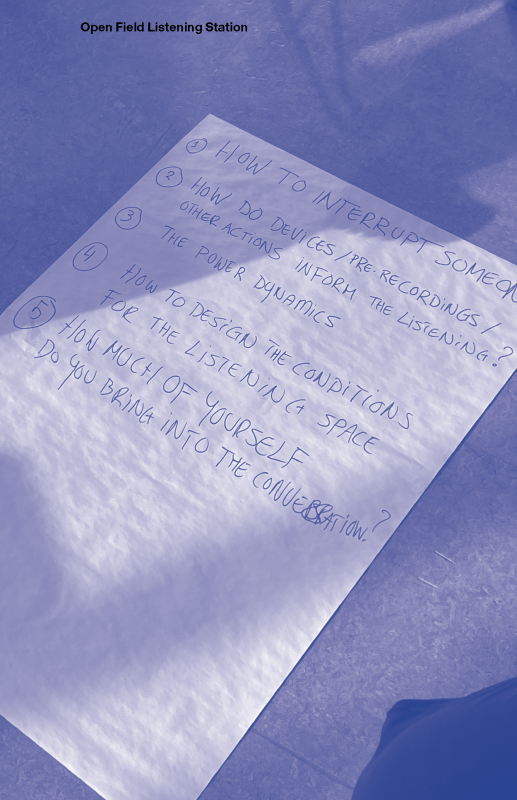 Open Field Listening Station
① HOW TO INTERRUPT
② HOW DO DEVICES / PRE-RECORDINGS /
OTHER ACTIONS INFORM THE LISTENING?
③ THE POWER DYNAMICS
④ HOW TO DESIGN THE CONDITIONS
FOR THE LISTENING SPACE
⑤ HOW MUCH OF YOURSELF
DO YOU BRING INTO THE CONVERSATION?